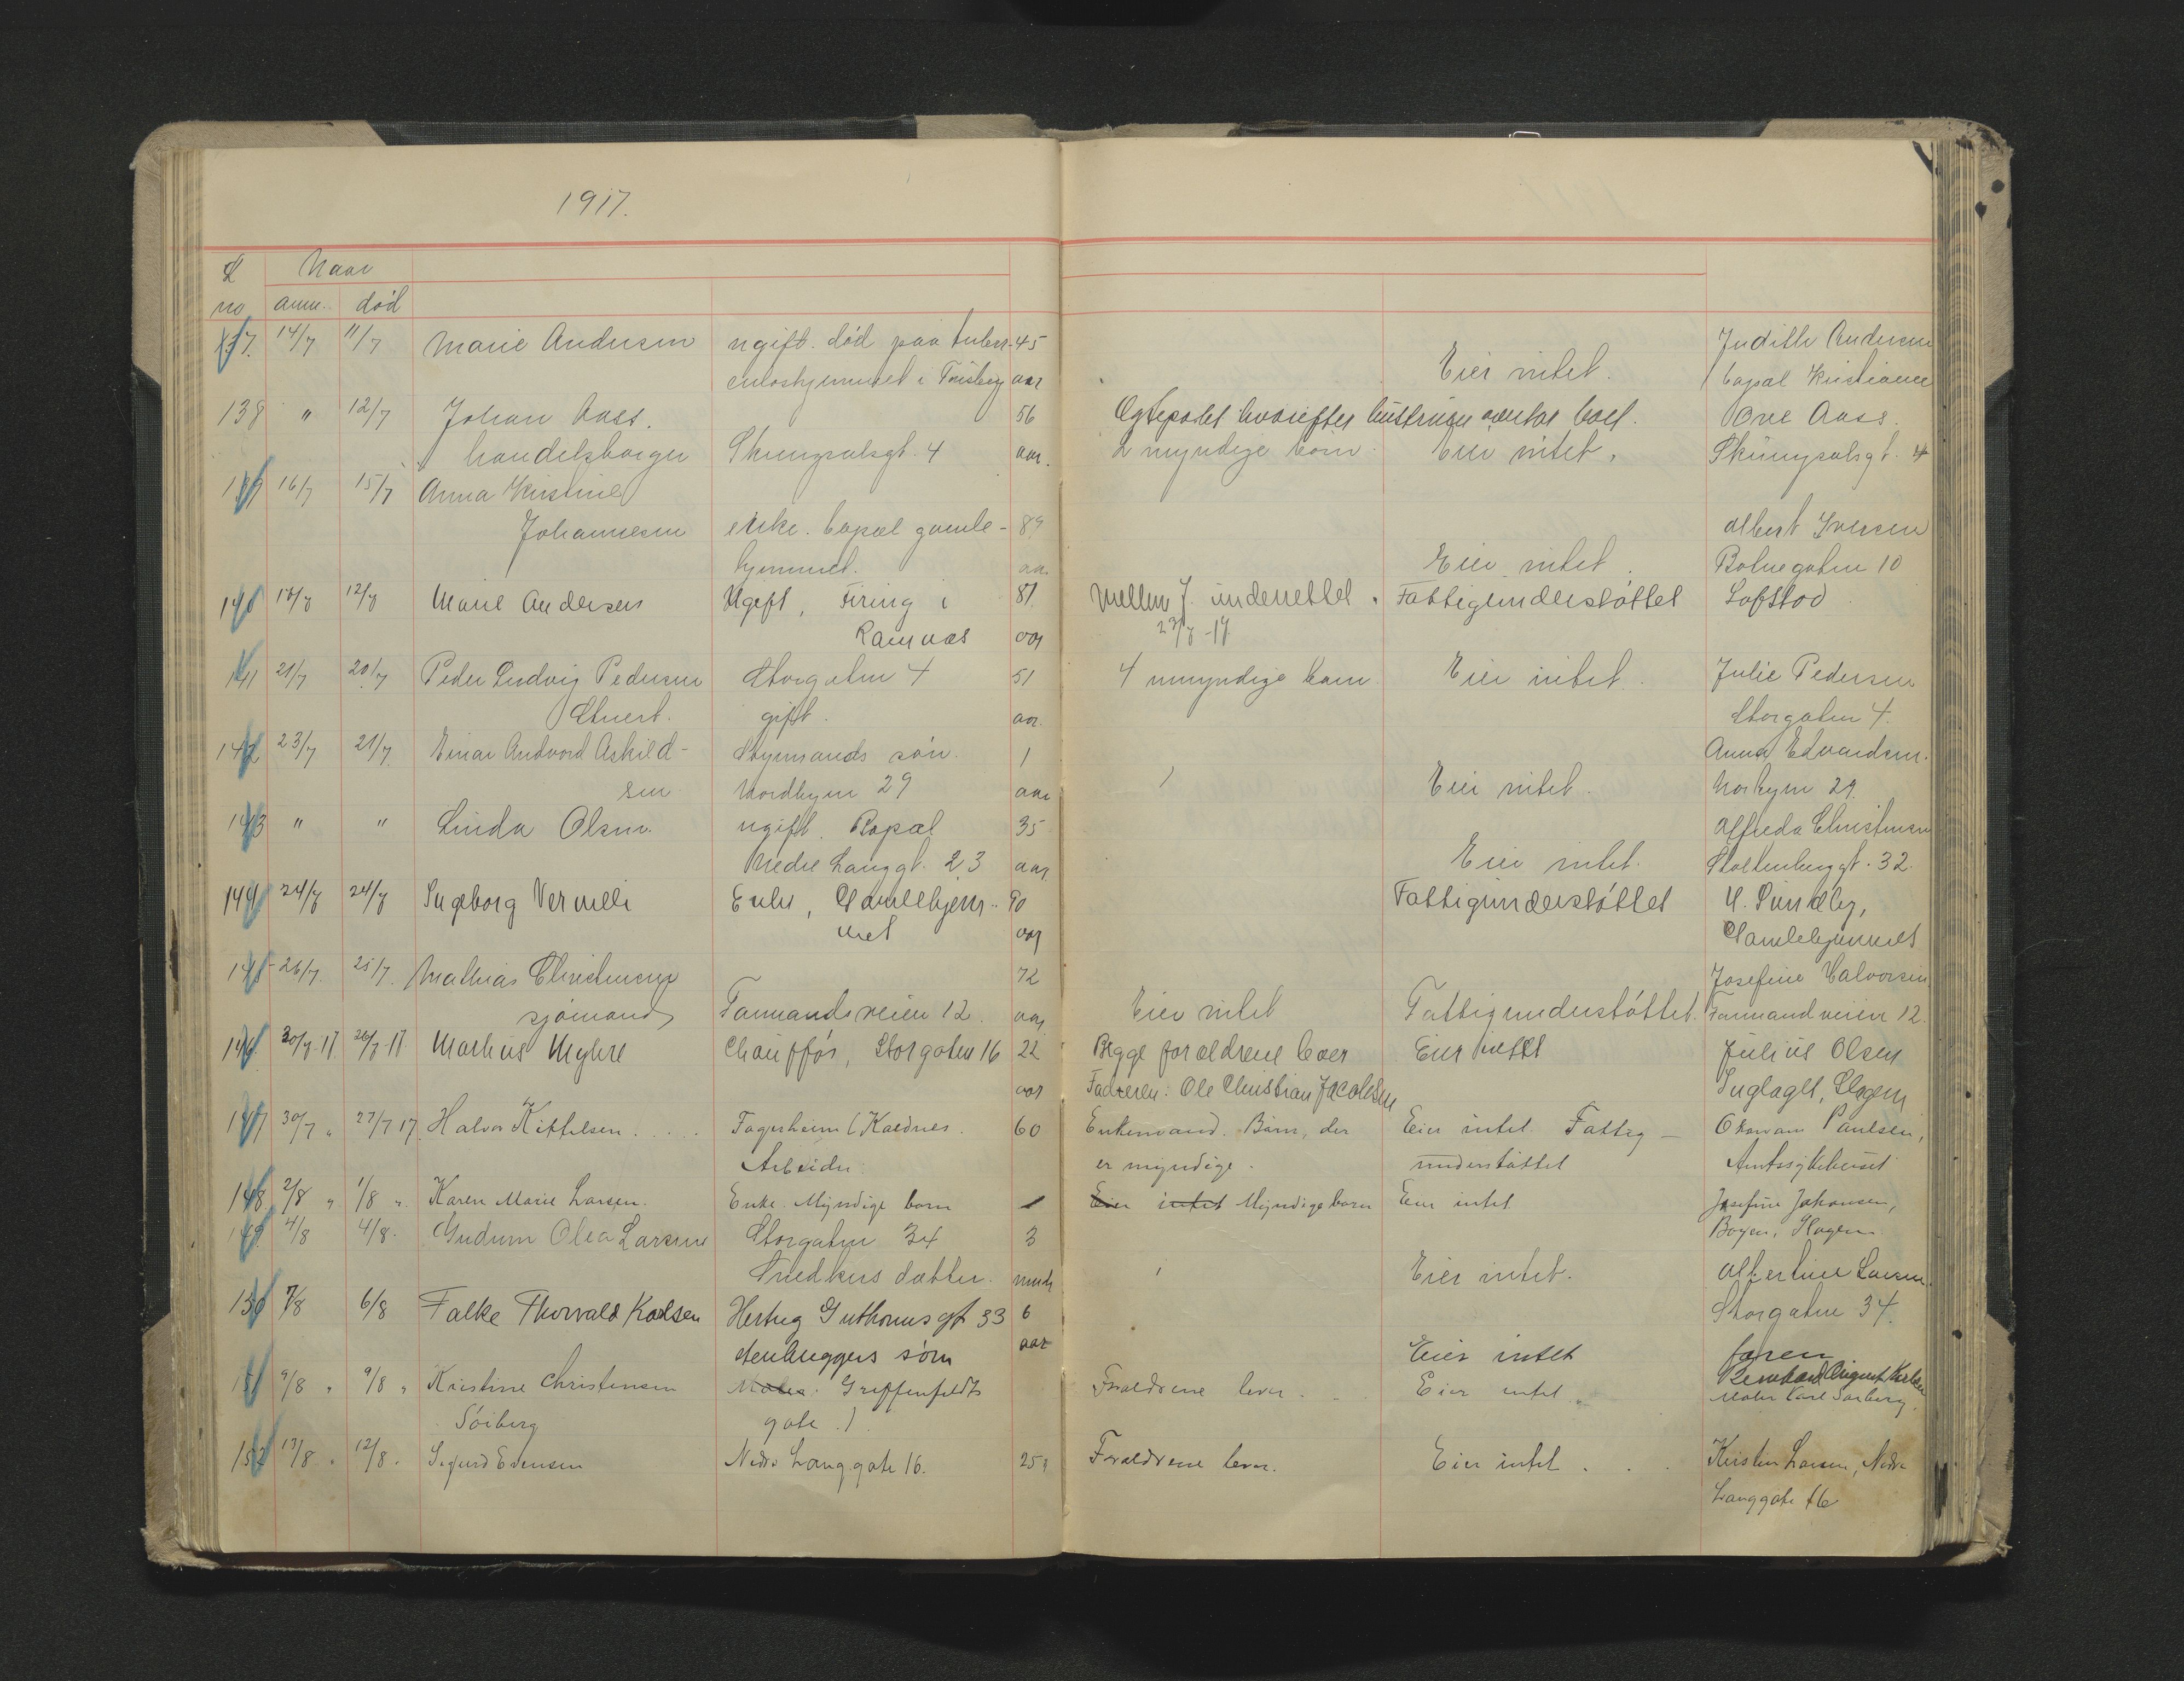 1917.
L Naar
no anm. død
137. 14/7 11/7 Marie Andersen ugift. død paa tuber- 45 Judith Andersen
culoshjemmet i Tønsberg aar Eier intet. Kapal Kristiania
138 " 12/7 Johan Aass. 56 Egtepakt hvorefter hustruen overtar boet. Ove Aass.
handelsborger Skringsalsgt. 4 aar. 2 myndige børn. Eier intet. Skringsalsgt. 4
139 16/7 15/7 Anna Kristine
Johannesen enke. Kapal gamle- 89 Albert Iversen
hjemmet. aar Eier intet. Bolnegaten 10
140 18/7 12/7 Marie Andersen Ugift, Firing i 81 underrettet. Fattigunderstøttet Lofstod
Ramnæs aar 23/7-17
141 21/7 20/7 Peder Ludvig Pedersen Storgaten 4 51 4 umyndige barn Eier intet. Julie Pedersen
Stuert. gift. aar. Storgaten 4.
142 23/7 21/7 Einar Andvord Askild- Styrmands søn. 1 Anna Edvardsen.
sen Nordbyen 29 aar Eier intet. Norbyen 29.
143 " " Linda Olsen. ugift. Kapal 35 Alfreda Christensen
Nedre Langgt. 23 aar Eier intet. Stoltenberggt. 32.
144 24/7 24/7 Ingeborg Vermeli Enke, Gamlehjem- 90 Fattigunderstøttet U. Sundby,
met aar Gamlehjemmet
145 26/7. 25/7. Mathias Christensen 72 Josefine Halvorsen
sjømand Farmandsveien 12. aar Eier intet Fattigunderstøttet. Farmandveien 12.
146. 30/7-17 26/7-17 Markus Myhre Chauffør, Storgaten 16 22 Begge forældrene lever Eier intet Julius Olsen
aar Faderen: Ole Christian Jacobsen Slagen
147 30/7 " 27/7 17 Halvor Kittilsen.... Fagerheim (Kaldnes. 60 Enkemand. Barn, der Eier intet. Fattig- Paulsen,
Arbeider. er myndige. understøttet Amtssykehuset
148. 2/8 " 1/8 ". Karen Marie Larsen. Enke. Myndige barn Eier intet Myndige barn Eier intet Josefine Johansen,
149. 4/8 4/8. Gudrun Olea Larsen Storgaten 34 3 Bogen, Slagen.
Snedkers datter. mndr Eier intet. Albertine Larsen.
150 7/8 6/8 Falke Thorvald Karlsen Hertug Guthormsgt 33 6 Storgaten 34.
stenhuggers søn aar Eier intet faren
151 9/8 " 9/8 " Kristine Christensen Maler: Griffenfeldts Foraldrene lever. Eier intet. Bernhard August Karlsen
Søiberg gate 1. Maler Carl Søiberg.
152 13/8 " 12/8. Sigurd Evensen Nedre Langgate 16. 25 Foraldrene lever. Eier intet... Kirsten Larsen, Nedre
Langgate 16